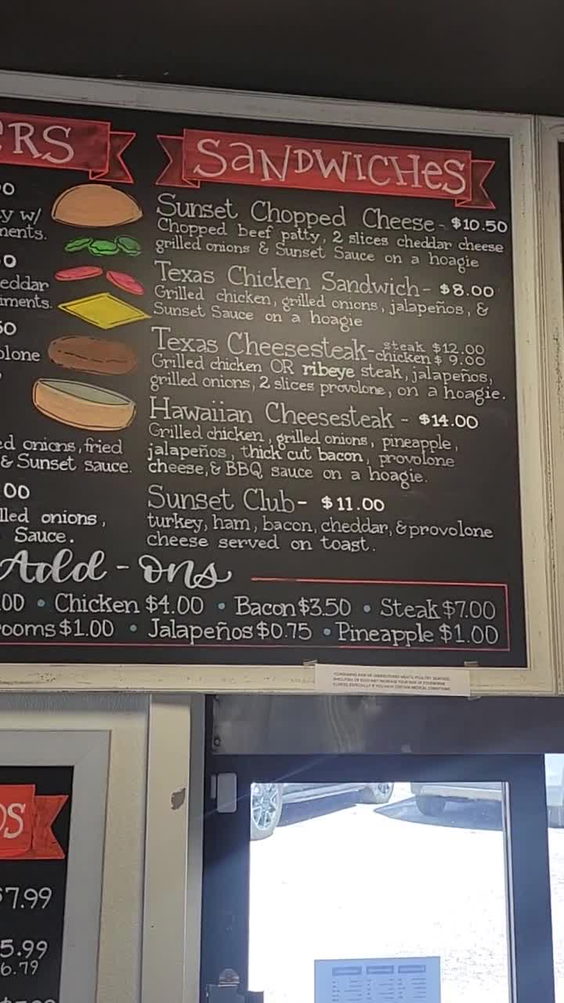 ERS
SANDWICHES
Sunset Chopped Cheese - $10.50
Chopped beef patty, 2 slices cheddar cheese
grilled onions & Sunset Sauce on a hoagie
Texas Chicken Sandwich - $8.00
Grilled chicken, grilled onions, jalapeños, &
Sunset Sauce on a hoagie
Texas Cheesesteak - steak $12.00
chicken $ 9.00
Grilled chicken OR ribeye steak, jalapeños,
grilled onions, 2 slices provolone, on a hoagie.
Hawaiian Cheesesteak - $14.00
Grilled chicken, grilled onions, pineapple,
jalapeños, thick cut bacon, provolone
cheese, & BBQ sauce on a hoagie.
Sunset Club - $11.00
turkey, ham, bacon, cheddar, & provolone
cheese served on toast.
y w/
ments.
eddar
iments.
50
olone
ed onions, fried
& Sunset sauce.
00
lled onions,
Sauce.
Add-ons
.00 • Chicken $4.00 • Bacon $3.50 • Steak $7.00
ooms $1.00 • Jalapeños $0.75 • Pineapple $1.00
DS
$7.99
5.99
6.79